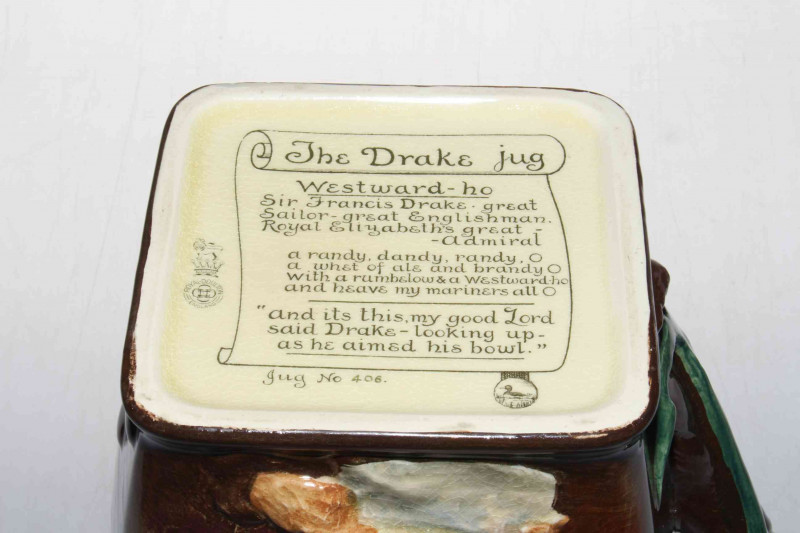 The Drake jug
Westward-ho
Sir Francis Drake - great
Sailor - great Englishman.
Royal Eliyabeth's great -
- Admiral
a randy, dandy, randy, O
a whet of ale and brandy O
with a rumbelow & a Westward-ho
and heave my mariners all O
"and its this, my good Lord
said Drake - looking up -
as he aimed his bowl."
Jug No 406.